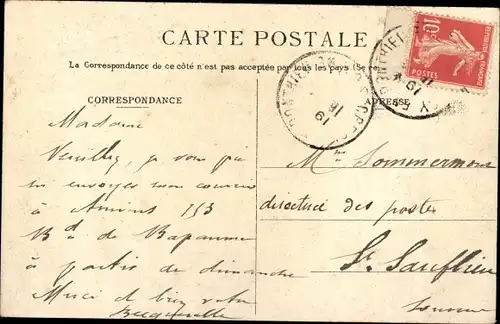 CARTE POSTALE
La Correspondance de ce côté n'est pas acceptée par tous les pays (Se
CORRESPONDANCE
ADRESSE
10c
POSTES
Madame
Veuillez, je vous prie
m envoyer mon courrier
à Amiens 153
Bd de Bapaume
à partir de dimanche
Merci de bien votre
M Sommermont
directrice des postes
St Sauflieu
Somme